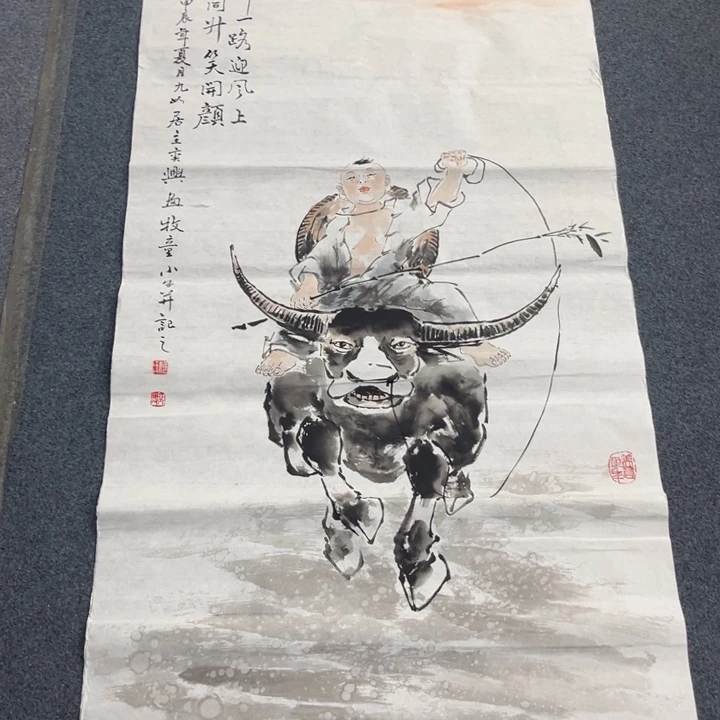 一路迎风上
同升笑開顔
甲辰年夏月九如居主奕興画牧童小牛并記之